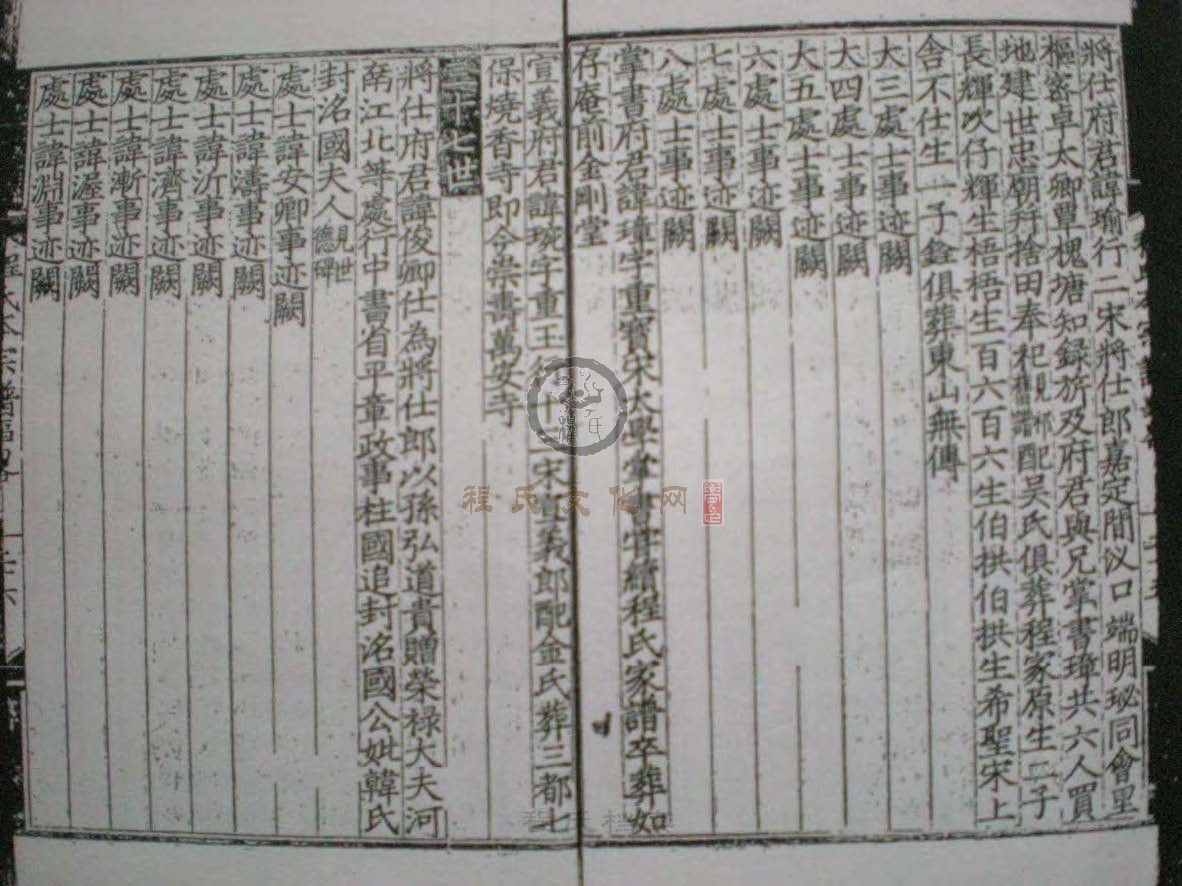 將仕府君諱瑜行二宋將仕郎嘉定間汊口端明珌同會里
樞密卓太卿覃槐塘知録旂及府君與兄掌書璋共六人買
地建世忠廟幷捨田奉祀見郡舊譜配吳氏俱葬程家原生二子
長輝次仔輝生梧梧生百六百六生伯拱伯拱生希聖宋上
舍不仕生一子銓俱葬東山無傳
大三處士事迹闕
大四處士事迹闕
大五處士事迹闕
六處士事迹闕
七處士事迹闕
八處士事迹闕
掌書府君諱璋字重寳宋太學掌書嘗續程氏家譜卒葬如
存庵前金剛堂
宣義府君諱琬字重玉行十二宋宣義郎配金氏葬三都七
保燒香寺即今崇壽萬安寺
三十七世
將仕府君諱俊卿仕為將仕郎以孫弘道貴贈榮禄大夫河
南江北等處行中書省平章政事柱國追封洺國公妣韓氏
封洺國夫人見世德碑
處士諱安卿事迹闕
處士諱濤事迹闕
處士諱沂事迹闕
處士諱濟事迹闕
處士諱漸事迹闕
處士諱渥事迹闕
處士諱淵事迹闕
程氏文化网